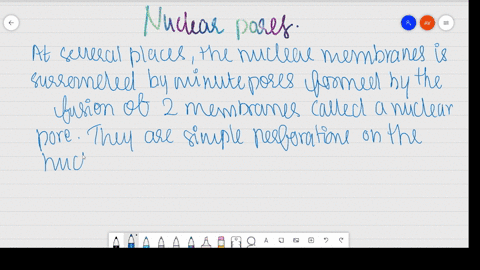 Nuclear pores.
At several places, the nuclear membranes is
surrounded by minute pores formed by the
fusion of 2 membranes called a nuclear
pore. They are simple perforations on the
nuc